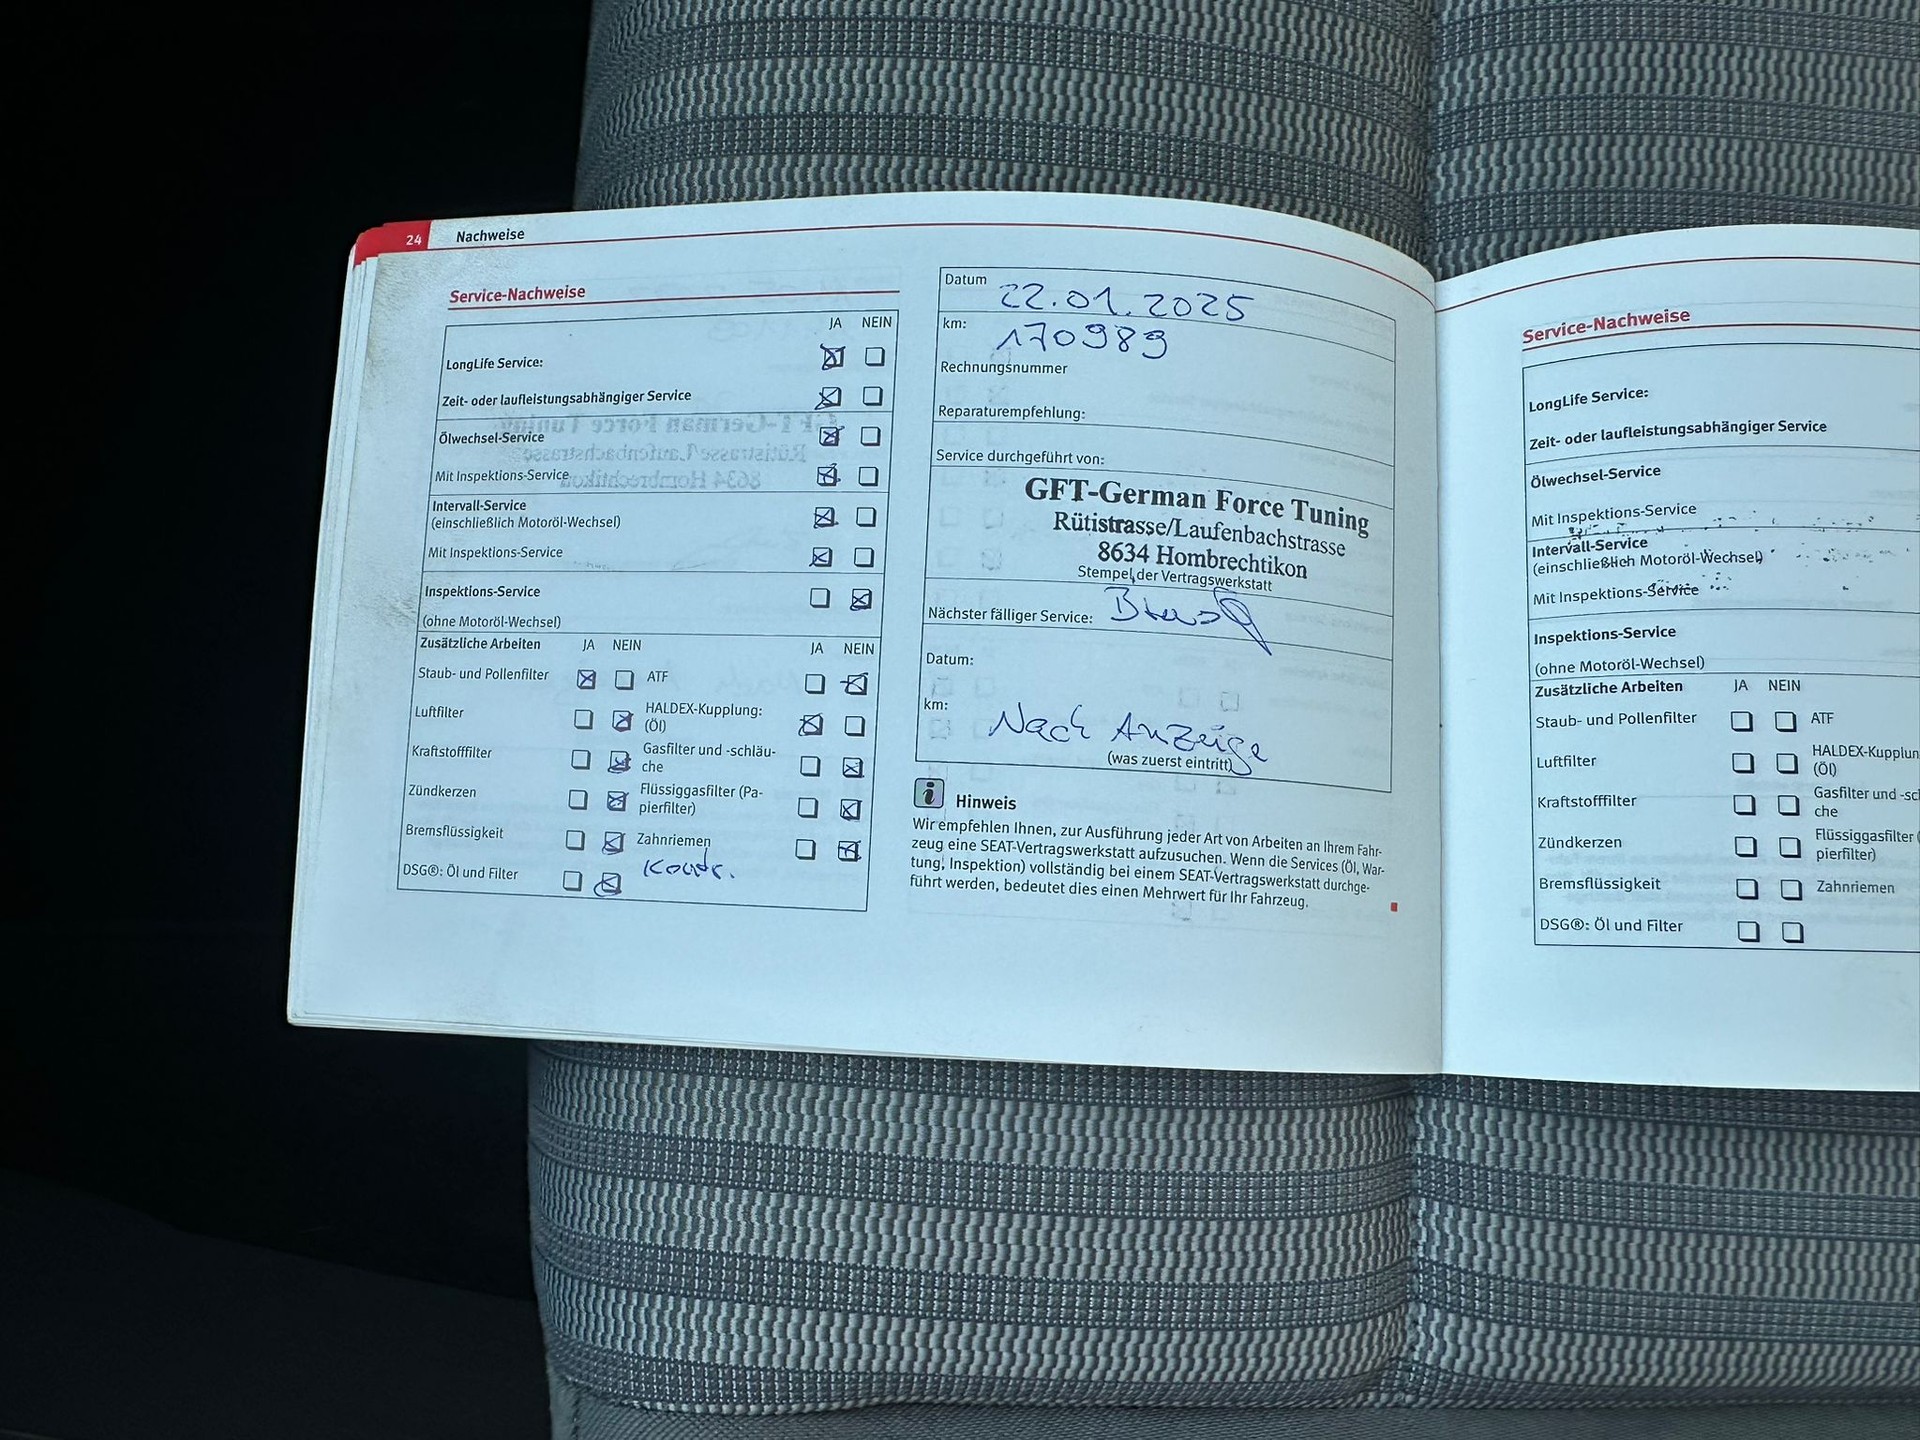 24 Nachweise
Service-Nachweise
JA NEIN
LongLife Service:
Zeit- oder laufleistungsabhängiger Service
Ölwechsel-Service
Mit Inspektions-Service
Intervall-Service
(einschließlich Motoröl-Wechsel)
Mit Inspektions-Service
Inspektions-Service
(ohne Motoröl-Wechsel)
Zusätzliche Arbeiten JA NEIN JA NEIN
Staub- und Pollenfilter ATF
Luftfilter HALDEX-Kupplung:
(Öl)
Kraftstofffilter Gasfilter und -schläu-
che
Zündkerzen Flüssiggasfilter (Pa-
pierfilter)
Bremsflüssigkeit Zahnriemen
Kontr.
DSG®: Öl und Filter
Datum 22.01.2025
km: 170989
Rechnungsnummer
Reparaturempfehlung:
Service durchgeführt von:
GFT-German Force Tuning
Rütistrasse/Laufenbachstrasse
8634 Hombrechtikon
Stempel der Vertragswerkstatt
Nächster fälliger Service:
Datum:
km: Nach Anzeige
(was zuerst eintritt)
Hinweis
Wir empfehlen Ihnen, zur Ausführung jeder Art von Arbeiten an Ihrem Fahr-
zeug eine SEAT-Vertragswerkstatt aufzusuchen. Wenn die Services (Öl, War-
tung, Inspektion) vollständig bei einem SEAT-Vertragswerkstatt durchge-
führt werden, bedeutet dies einen Mehrwert für Ihr Fahrzeug.
Service-Nachweise
LongLife Service:
Zeit- oder laufleistungsabhängiger Service
Ölwechsel-Service
Mit Inspektions-Service
Intervall-Service
(einschließlich Motoröl-Wechsel)
Mit Inspektions-Service
Inspektions-Service
(ohne Motoröl-Wechsel)
Zusätzliche Arbeiten JA NEIN
Staub- und Pollenfilter ATF
Luftfilter HALDEX-Kupplun
(Öl)
Kraftstofffilter Gasfilter und -scl
che
Zündkerzen Flüssiggasfilter (
pierfilter)
Bremsflüssigkeit Zahnriemen
DSG®: Öl und Filter